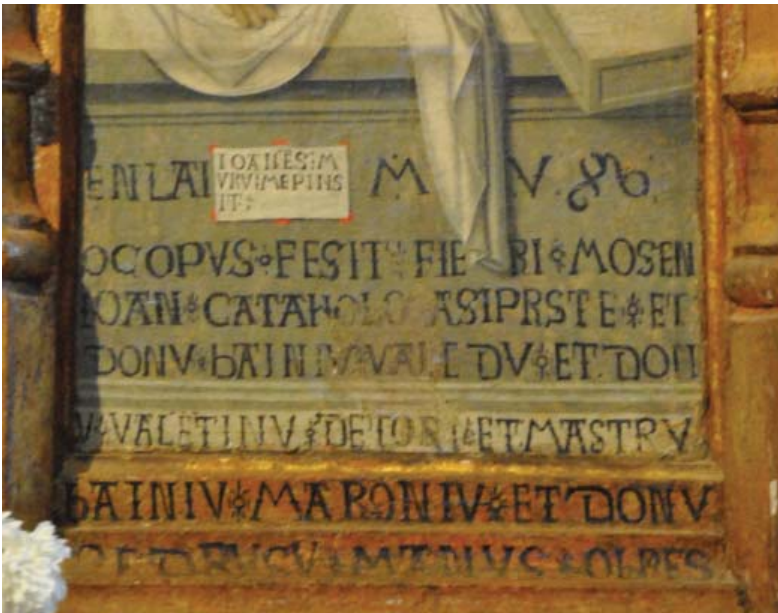 IOANESIM
VRVIMEPINS
IT:
ENLAI M V
OCOPVS FESIT FIE RI MOSEN
IOAN CATAHOLO ASIPRSTE ET
DONV bAINIV VALEDV ET DON
V VALETINV DETORI ET MASTRV
bAINIV MARONIV ET DONV
MANVS